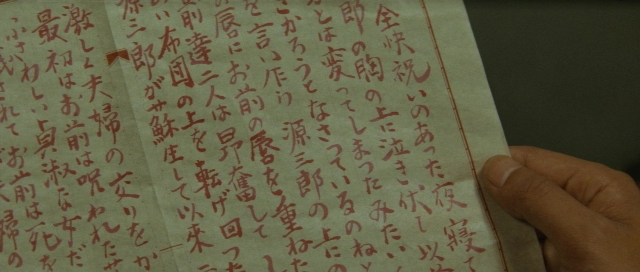 全快祝いのあった夜 寝て
郎の胸の上に泣き伏し以
とは変ってしまったみたい
ごかろうとなさっているのねと
を言い乍ら 源三郎の上に
の唇にお前の唇を重ねた
前達二人は昂奮して し
い布団の上を転げ回った
源三郎が蘇生して以来 二
激しく夫婦の交りをか
最初はお前は呪われた
ふさわしい貞淑な女だ
されてお前は死を